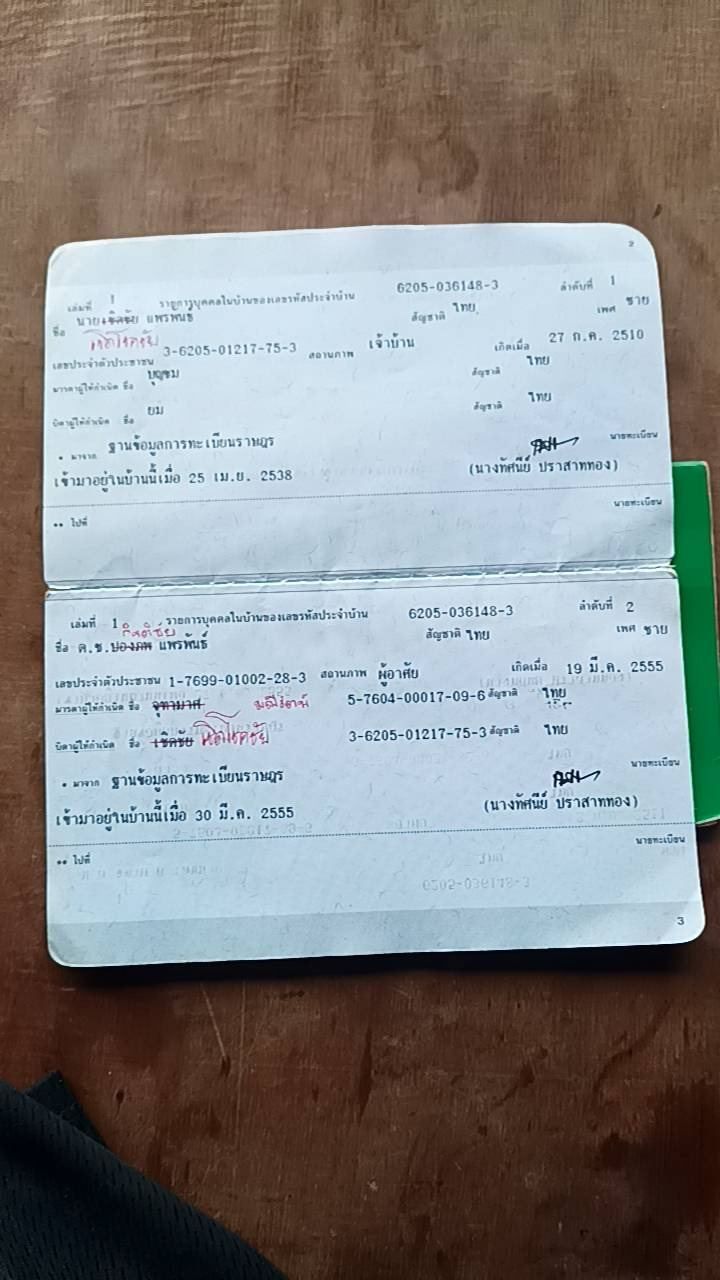 2
เล่มที่ 1 รายการบุคคลในบ้านของเลขรหัสประจำบ้าน 6205-036148-3 ลำดับที่ 1
ชื่อ นายเชิดชัย แพรพันธ์ สัญชาติ ไทย เพศ ชาย
เลขประจำตัวประชาชน 3-6205-01217-75-3 สถานภาพ เจ้าบ้าน เกิดเมื่อ 27 ก.ค. 2510
มารดาผู้ให้กำเนิด ชื่อ บุญชม สัญชาติ ไทย
บิดาผู้ให้กำเนิด ชื่อ ยม สัญชาติ ไทย
* มาจาก ฐานข้อมูลการทะเบียนราษฎร นายทะเบียน
เข้ามาอยู่ในบ้านนี้เมื่อ 25 เม.ย. 2538 (นางทัศนีย์ ปราสาททอง)
** ไปที่ นายทะเบียน
เล่มที่ 1 รายการบุคคลในบ้านของเลขรหัสประจำบ้าน 6205-036148-3 ลำดับที่ 2
กิตติชัย
ชื่อ ด.ช.ปองภพ แพรพันธ์ สัญชาติ ไทย เพศ ชาย
เลขประจำตัวประชาชน 1-7699-01002-28-3 สถานภาพ ผู้อาศัย เกิดเมื่อ 19 มี.ค. 2555
มารดาผู้ให้กำเนิด ชื่อ จุฑามาศ 5-7604-00017-09-6 สัญชาติ ไทย
บิดาผู้ให้กำเนิด ชื่อ เชิดชัย 3-6205-01217-75-3 สัญชาติ ไทย
* มาจาก ฐานข้อมูลการทะเบียนราษฎร นายทะเบียน
เข้ามาอยู่ในบ้านนี้เมื่อ 30 มี.ค. 2555 (นางทัศนีย์ ปราสาททอง)
** ไปที่ นายทะเบียน
3